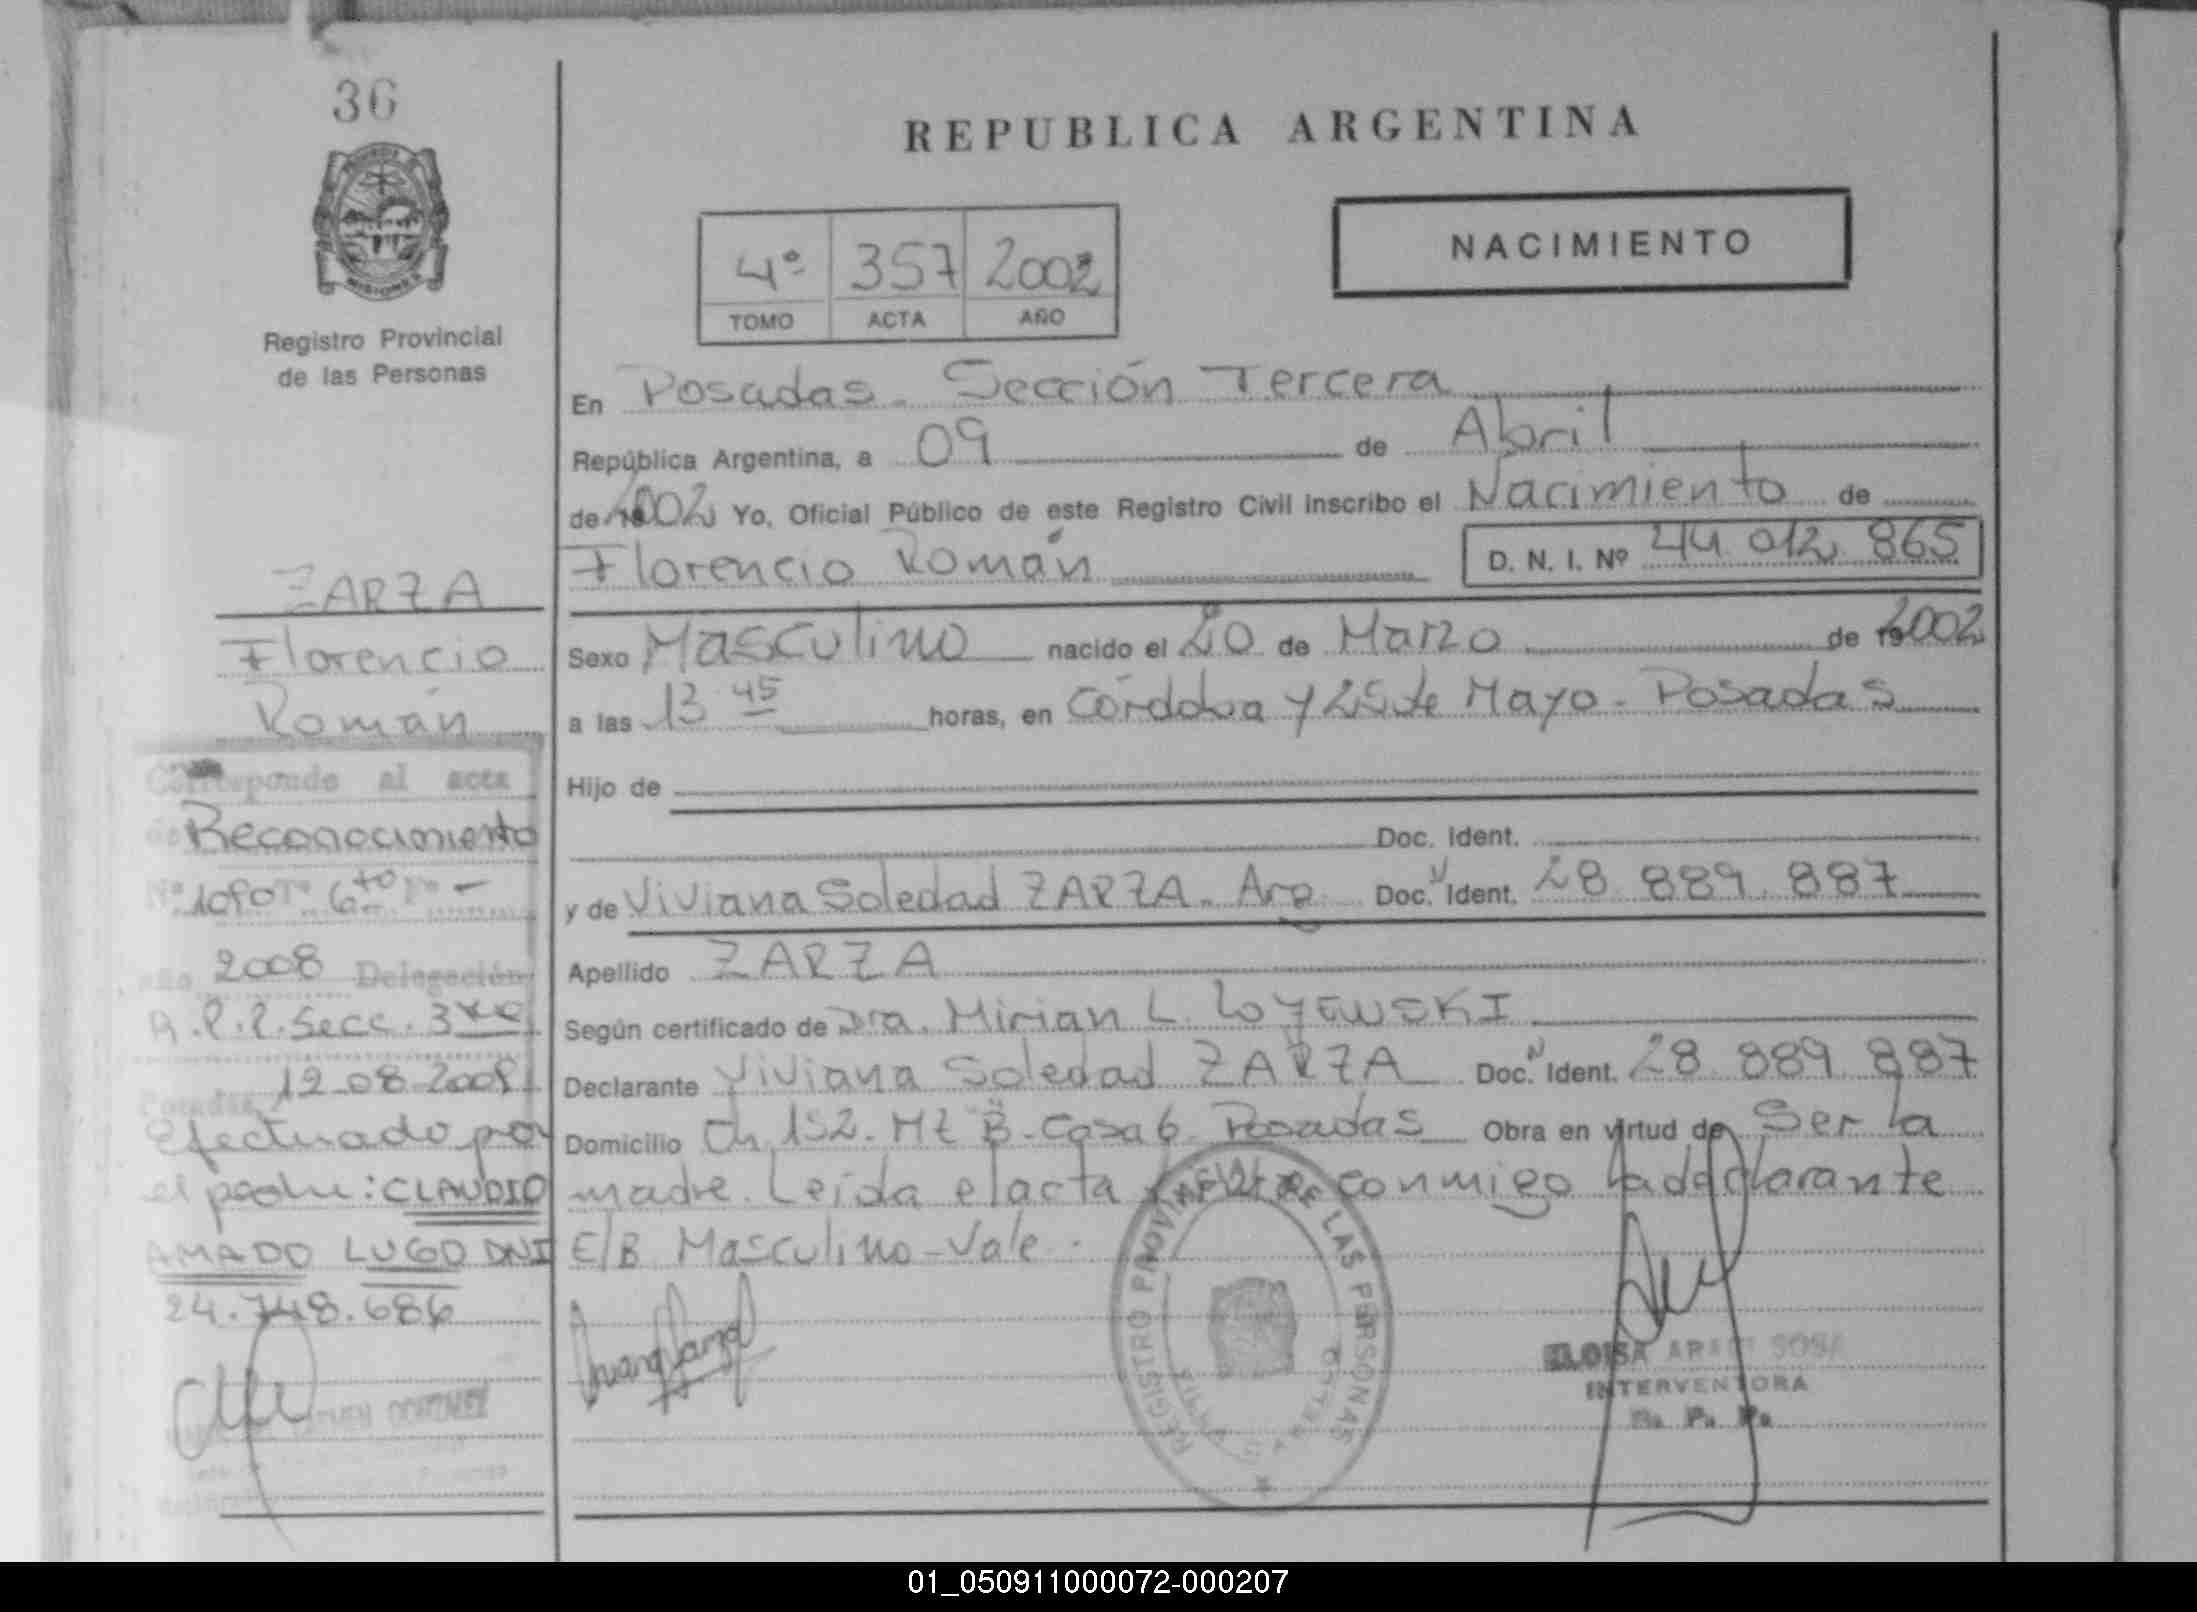 36
REPUBLICA ARGENTINA
NACIMIENTO
4º 357 2002
TOMO ACTA AÑO
Registro Provincial
de las Personas
En Posadas - Sección Tercera
República Argentina, a 09 de Abril
de 2002 Yo, Oficial Público de este Registro Civil inscribo el Nacimiento de
Florencio Román D. N. I. Nº 44 012 865
Sexo Masculino nacido el 20 de Marzo de 2002
a las 13 45 horas, en Córdoba y 25 de Mayo - Posadas
Hijo de
Doc. Ident.
y de Viviana Soledad ZARZA - Arg. Doc. Ident. 28 889 887
Apellido ZARZA
Según certificado de Dra. Mirian L. LOYEWSKI
Declarante Viviana Soledad ZARZA Doc. Ident. 28 889 887
Domicilio Ch 152 - Mz B - Casa 6 Posadas Obra en virtud de Ser la
madre. Leída el acta conmigo la declarante
E/B Masculino - Vale -
ZARZA
Florencio
Román
Corresponde al acta
de Reconocimiento
Nº 1080 Tº 6to Fº -
Año 2008 Delegación
R.P.P. Secc. 3ra
Posadas, 12-08-2008
Efectuado por
el padre: CLAUDIO
AMADO LUGO DNI
24.748.686
REGISTRO PROVINCIAL DE LAS PERSONAS
ELOISA SOSA
INTERVENTORA
R. P. P.
01_050911000072-000207